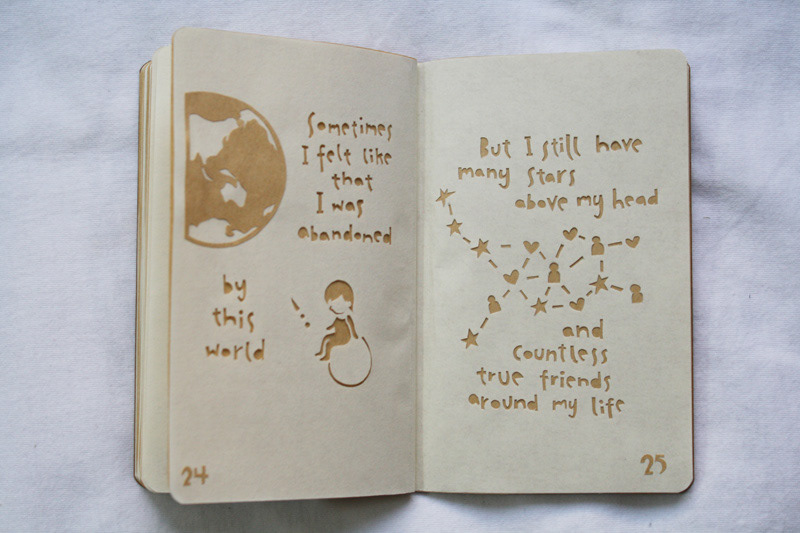 Sometimes
I felt like
that
I was
abandoned
by
this
world
24
But I still have
many stars
above my head
and
countless
true friends
around my life
25